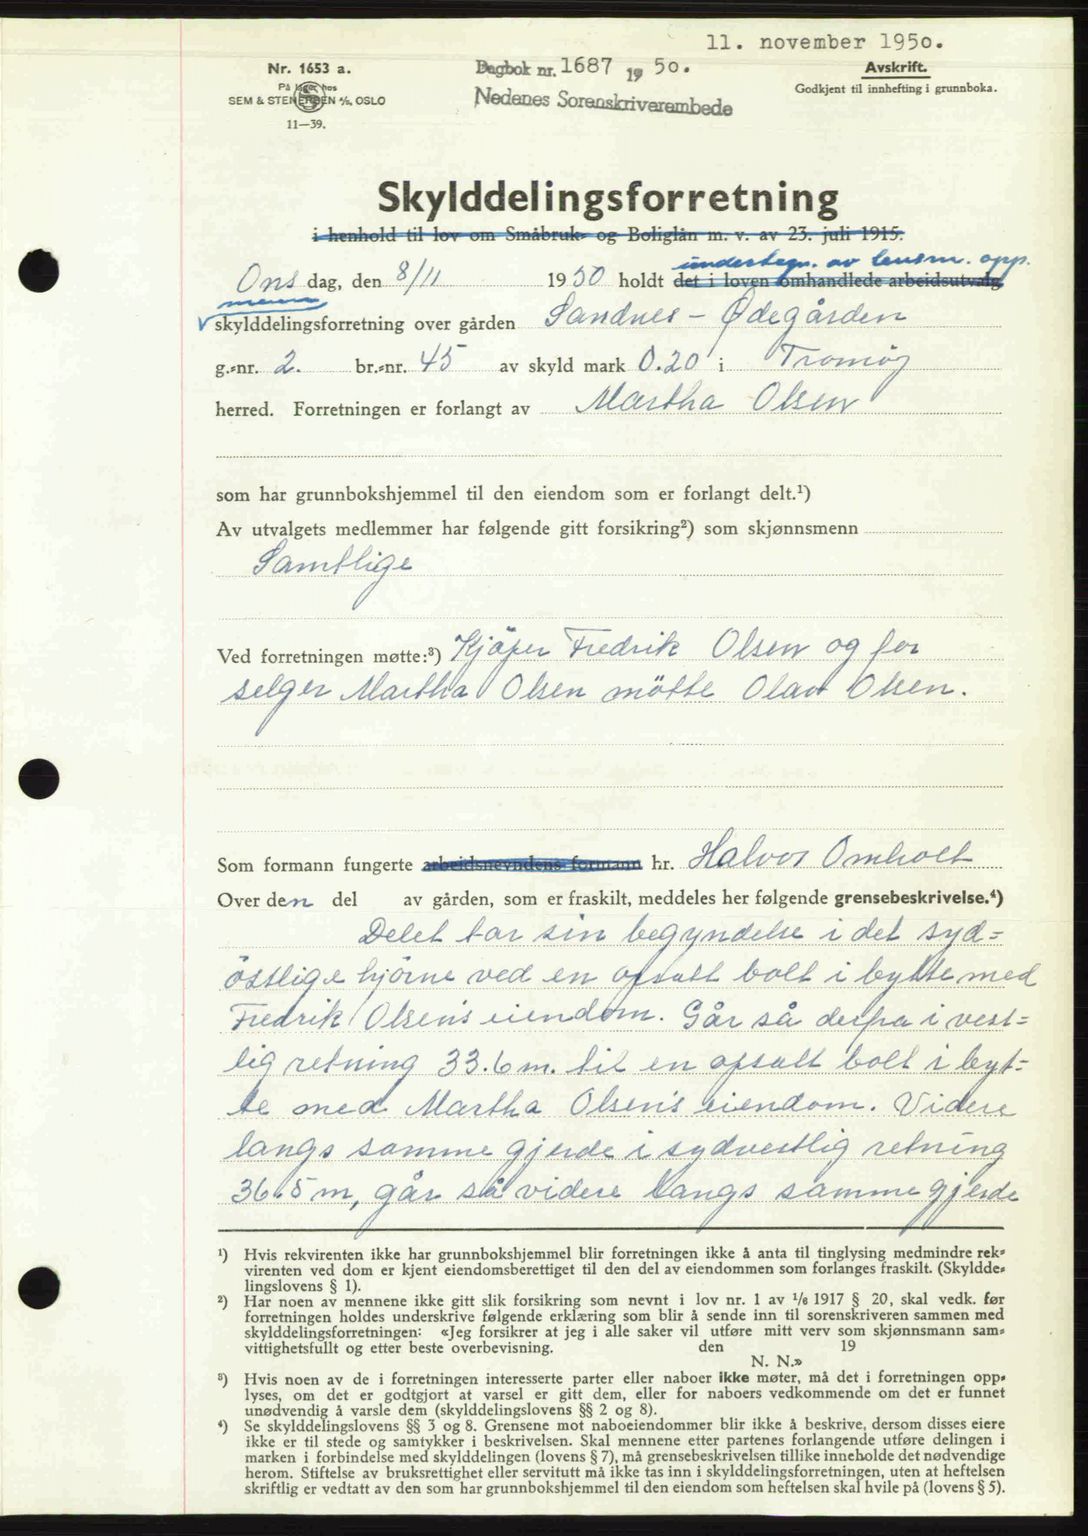 11. november 1950.
Nr. 1653 a.
På lager hos
SEM & STENERSEN A/S, OSLO
11—39.
Dagbok nr. 1687 19 50.
Nedenes Sorenskriverembede
Avskrift.
Godkjent til innhefting i grunnboka.
Skylddelingsforretning
i henhold til lov om Småbruk- og Boliglån m. v. av 23. juli 1915.
undertegn. av lensm. opp.
Ons dag, den 8/11 1950 holdt det i loven omhandlede arbeidsutvalg
skylddelingsforretning over gården Sandnes - Ødegården
g.-nr. 2. br.-nr. 45 av skyld mark 0.20 i Tromøy
herred. Forretningen er forlangt av Martha Olsen
som har grunnbokshjemmel til den eiendom som er forlangt delt.¹)
Av utvalgets medlemmer har følgende gitt forsikring²) som skjønnsmenn
Samtlige
Ved forretningen møtte:³) Kjøper Fredrik Olsen og for
selger Martha Olsen møtte Olav Olsen.
Som formann fungerte arbeidsnevndens formann hr. Halvor Omholt
Over den del av gården, som er fraskilt, meddeles her følgende grensebeskrivelse.⁴)
Delet tar sin begyndelse i det syd-
östlige hjörne ved en opsatt bolt i bytte med
Fredrik Olsens eiendom. Går så derfra i vest-
lig retning 33.6 m. til en opsatt bolt i byt-
te med Martha Olsen's eiendom. Videre
langs samme gjerde i sydvestlig retning
36.5 m, går så videre langs samme gjerde
¹) Hvis rekvirenten ikke har grunnbokshjemmel blir forretningen ikke å anta til tinglysing medmindre rek-
virenten ved dom er kjent eiendomsberettiget til den del av eiendommen som forlanges fraskilt. (Skyldde-
lingslovens § 1).
²) Har noen av mennene ikke gitt slik forsikring som nevnt i lov nr. 1 av 1/6 1917 § 20, skal vedk. før
forretningen holdes underskrive følgende erklæring som blir å sende inn til sorenskriveren sammen med
skylddelingsforretningen: «Jeg forsikrer at jeg i alle saker vil utføre mitt verv som skjønnsmann sam-
vittighetsfullt og etter beste overbevisning. den 19
N. N.»
³) Hvis noen av de i forretningen interesserte parter eller naboer ikke møter, må det i forretningen opp-
lyses, om det er godtgjort at varsel er gitt dem, eller for naboers vedkommende om det er funnet
unødvendig å varsle dem (skylddelingslovens §§ 2 og 8).
⁴) Se skylddelingslovens §§ 3 og 8. Grensene mot naboeiendommer blir ikke å beskrive, dersom disses eiere
ikke er til stede og samtykker i beskrivelsen. Skal mennene etter partenes forlangende utføre delingen i
marken i forbindelse med skylddelingen (lovens § 7), må grensebeskrivelsen tillike inneholde det nødvendige
herom. Stiftelse av bruksrettighet eller servitutt må ikke tas inn i skylddelingsforretningen, uten at heftelsen
skriftlig er vedtatt av den som har grunnbokshjemmel til den eiendom som heftelsen skal hvile på (lovens § 5).